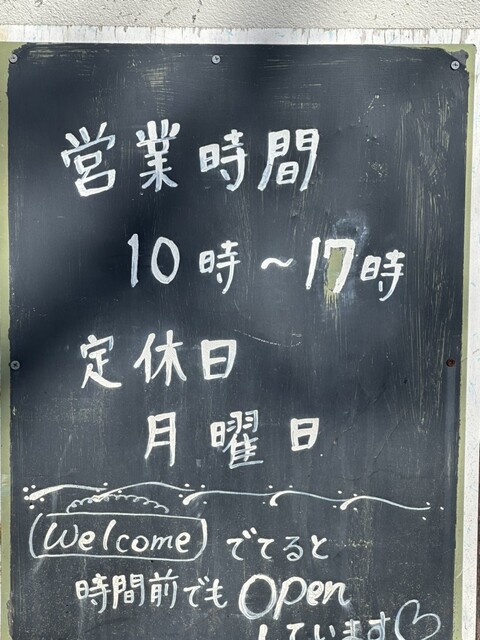 営業時間
10時～17時
定休日
月曜日
Welcome でてると
時間前でもOpen
しています♡